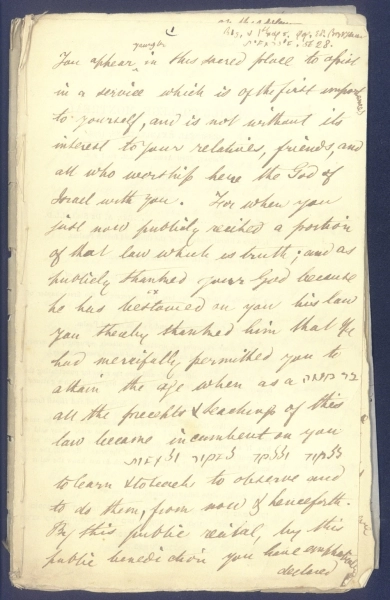 on the
youngest
You appear in this sacred place to assist
in a service which is of the first importance
to yourself, and is not without its
interest to your relatives, friends, and
all who worship here the God of
Israel with you. For when you
just now publicly recited a portion
of that law which is truth; and as
publicly thanked your God because
he has bestowed on you his law
you thereby thanked him that He
had mercifully permitted you to
attain the age when as a בר מצוה
all the precepts & teachings of this
law become incumbent on you
ללמוד וללמד לשמור ולעשות
to learn & to teach to observe and
to do them, from now & henceforth.
By this public recital, by this
public benediction you have emphatically
declared